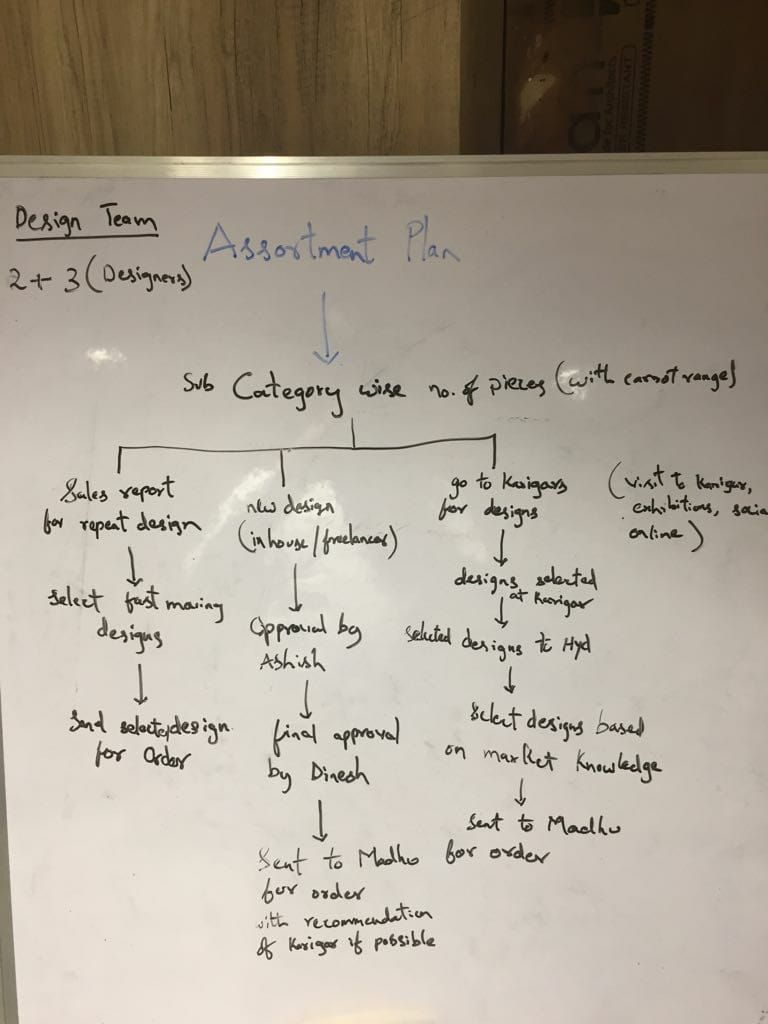 Design Team
2 + 3 (Designers)
Assortment Plan
Sub Category wise no. of pieces (with carrot range)
Sales report
for repeat design
select fast moving
designs
Send selected design
for Order
new design
(inhouse/freelancer)
Approval by
Ashish
final approval
by Dinesh
Sent to Madhu
for order
with recommendation
of Karigar if possible
go to Karigars
for designs
designs selected
at Karigar
Selected designs to Hyd
Select designs based
on market Knowledge
Sent to Madhu
for order
(visit to Karigar,
exhibitions, socia
online)